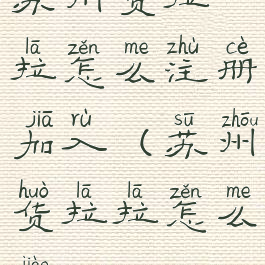 苏州货拉
lā zěn me zhù cè
拉怎么注册
jiā rù ( sū zhōu
加入（苏州
huò lā lā zěn me
货拉拉怎么